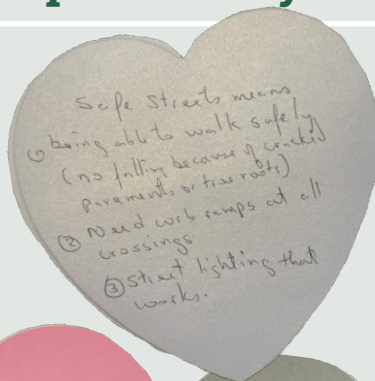 Safe Streets means
① being able to walk safely
(no falling because of cracked
pavements or tree roots)
② Need curb ramps at all
crossings
③ Street lighting that
works.